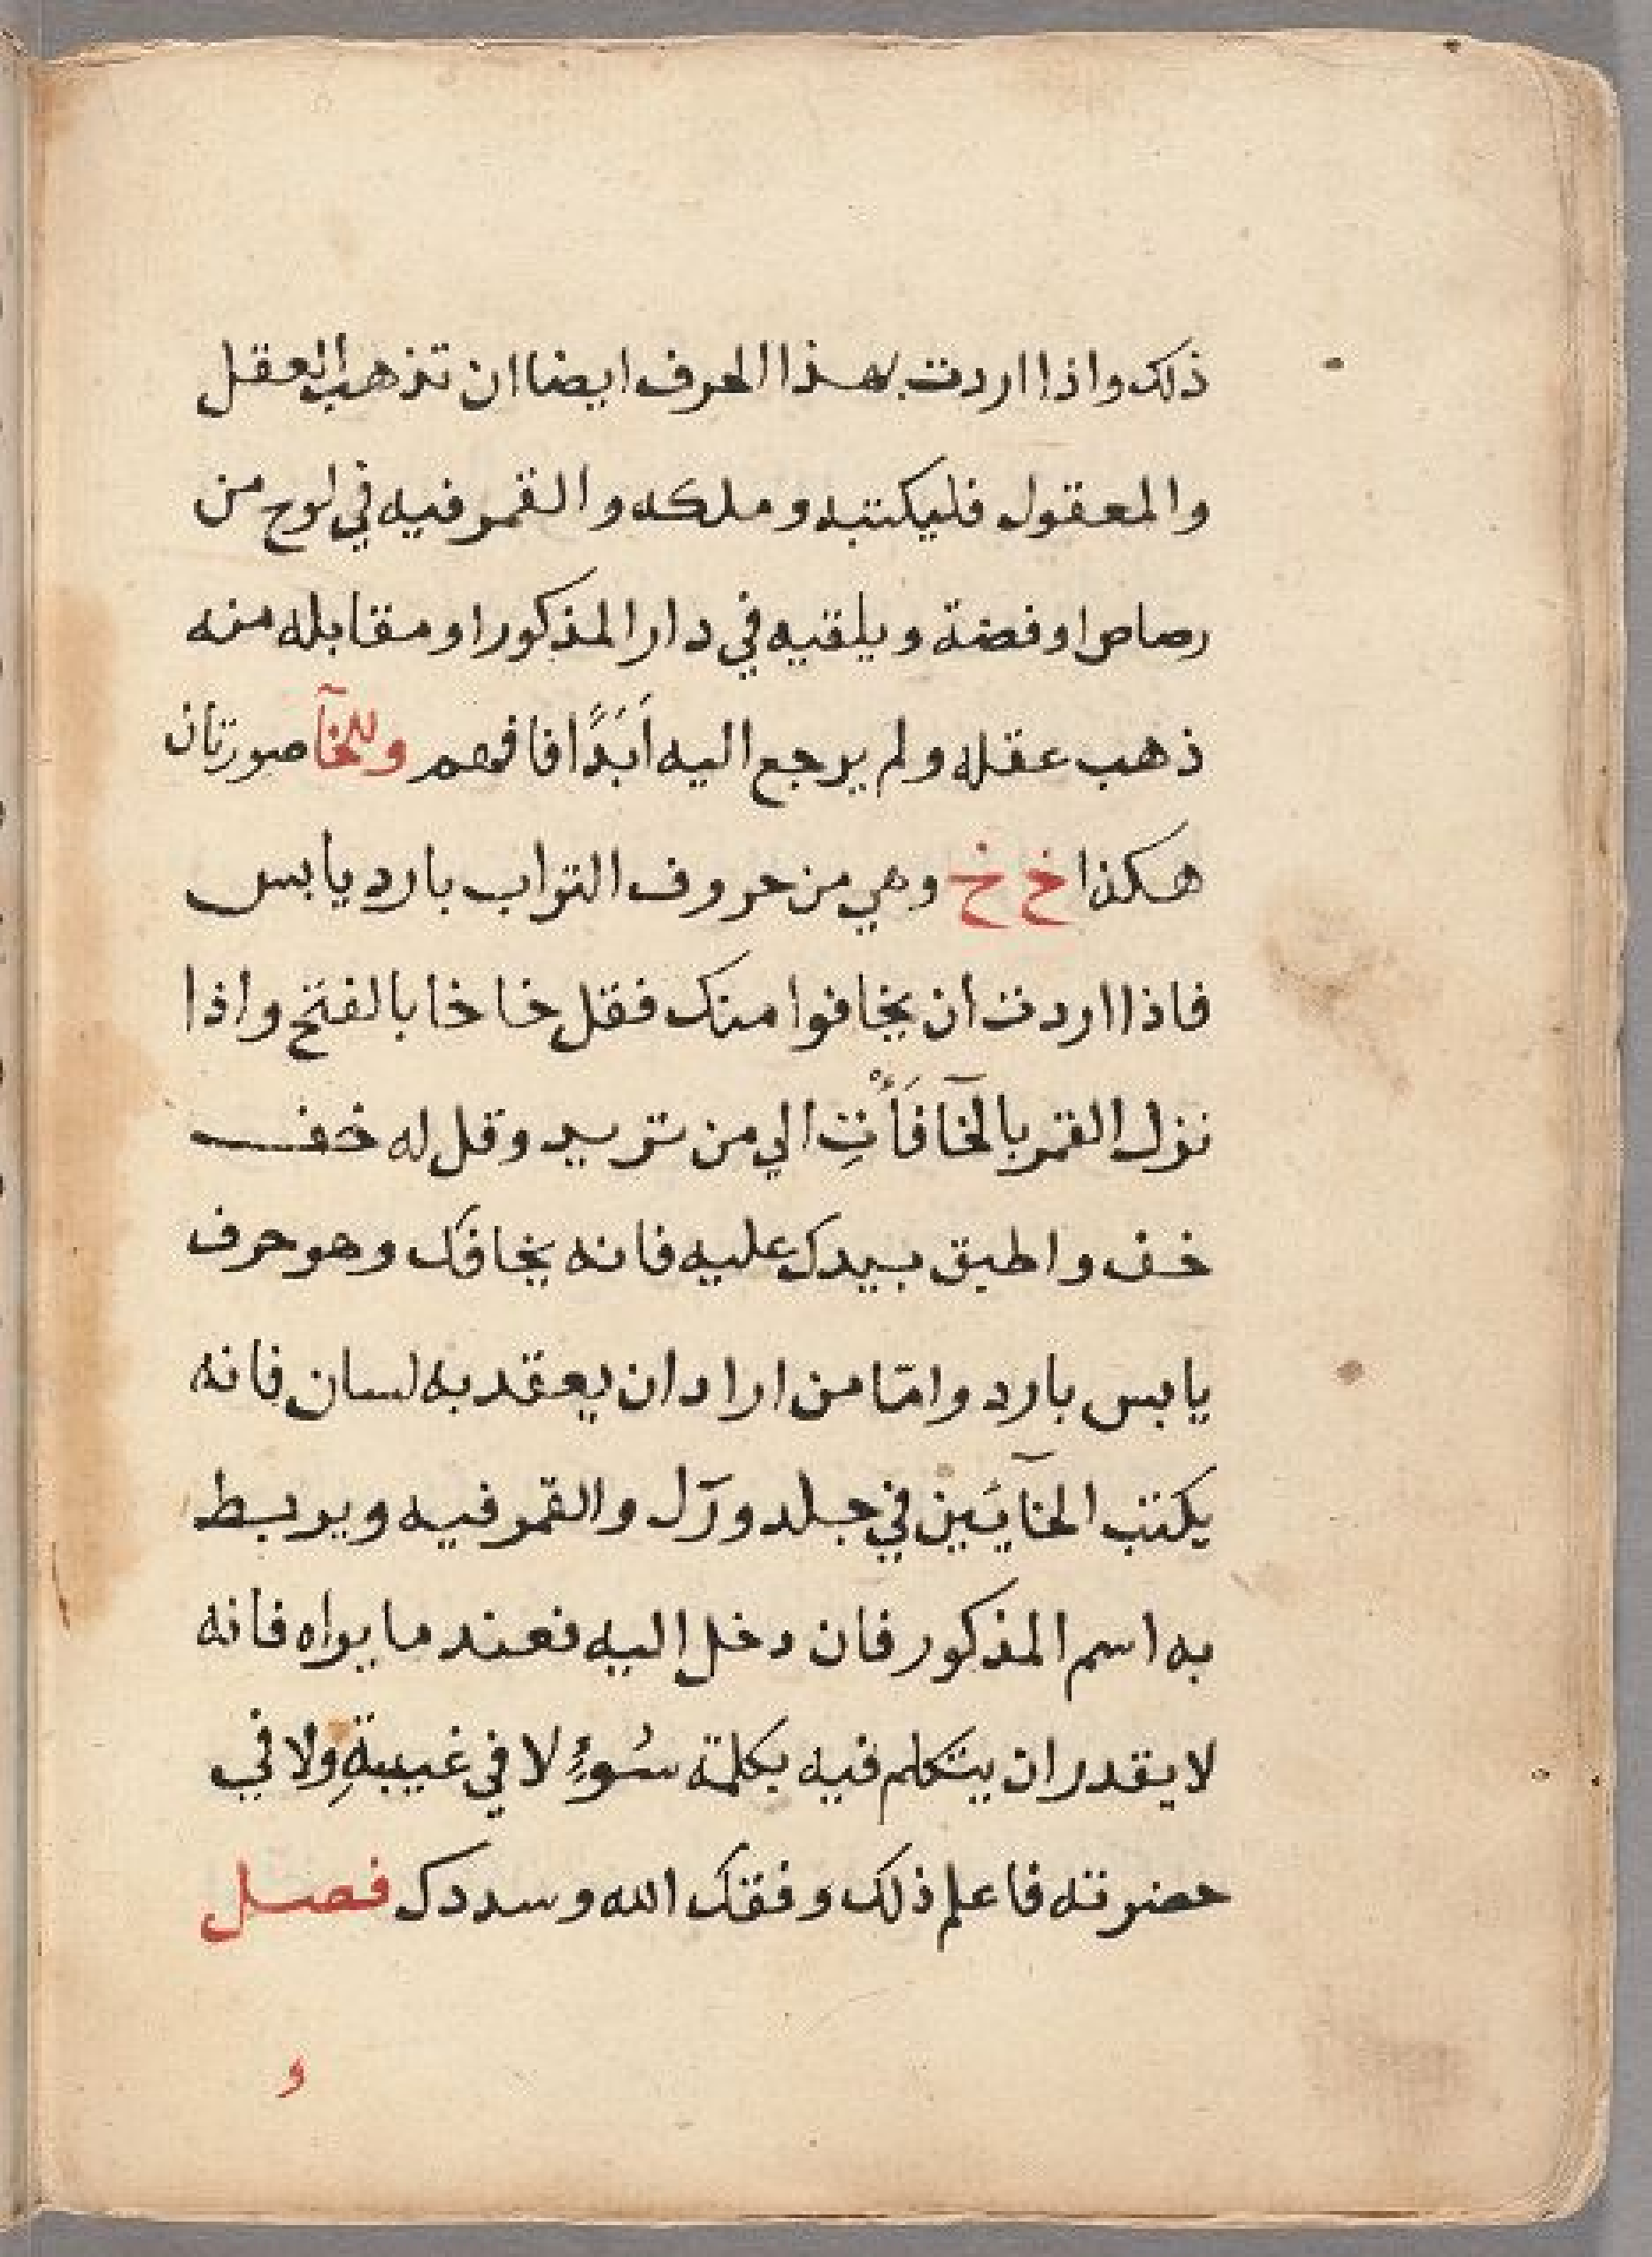 ذلك واذا اردت بهذا الحرف ايضا ان تذهب العقل
والمعقول فليكتبه وملكه والقمر فيه في لوح من
رصاص او فضة ويلقيه في دار المذكور او مقابله منه
ذهب عقله ولم يرجع اليه اَبَدًا فافهم وللخآ صورتان
هكذا خ خ وهي من حروف التراب بارد يابس
فاذا اردت ان يخافوا منك فقل خا خا بالفتح واذا
نزل القمر بالخآ فَأْتِ الي من تريد وقل له خف
خف واطبق بيدك عليه فانه يخافك وهو حرف
يابس بارد وامّا من اراد ان يعقد به لسان فانه
يكتب الخآئين في جلد ورَل والقمر فيه ويربط
به اسم المذكور فان دخل اليه فعند ما يراه فانه
لا يقدر ان يتكلم فيه بكلمة سُوءٍ لا في غيبةِ ولا في
حضرته فاعلم ذلك وفقك الله وسددك فصل
و